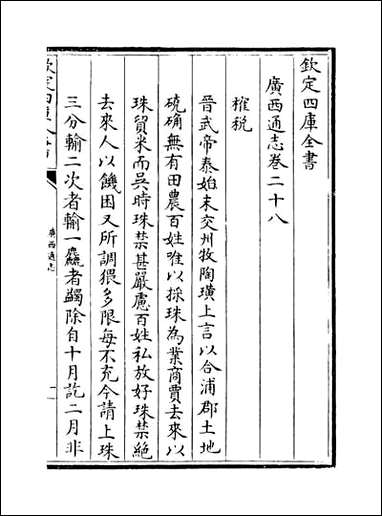 欽定四庫全書
廣西通志卷二十八
榷税
晉武帝泰始末交州牧陶璜上言以合浦郡土地
磽确無有田農百姓唯以採珠為業商賈去來以
珠貿米而吳時珠禁甚嚴慮百姓私放好珠禁絶
去來人以饑困又所調猥多限每不充今請上珠
三分輸二次者輸一麤者蠲除自十月訖二月非
欽定四庫全書
廣西通志
一